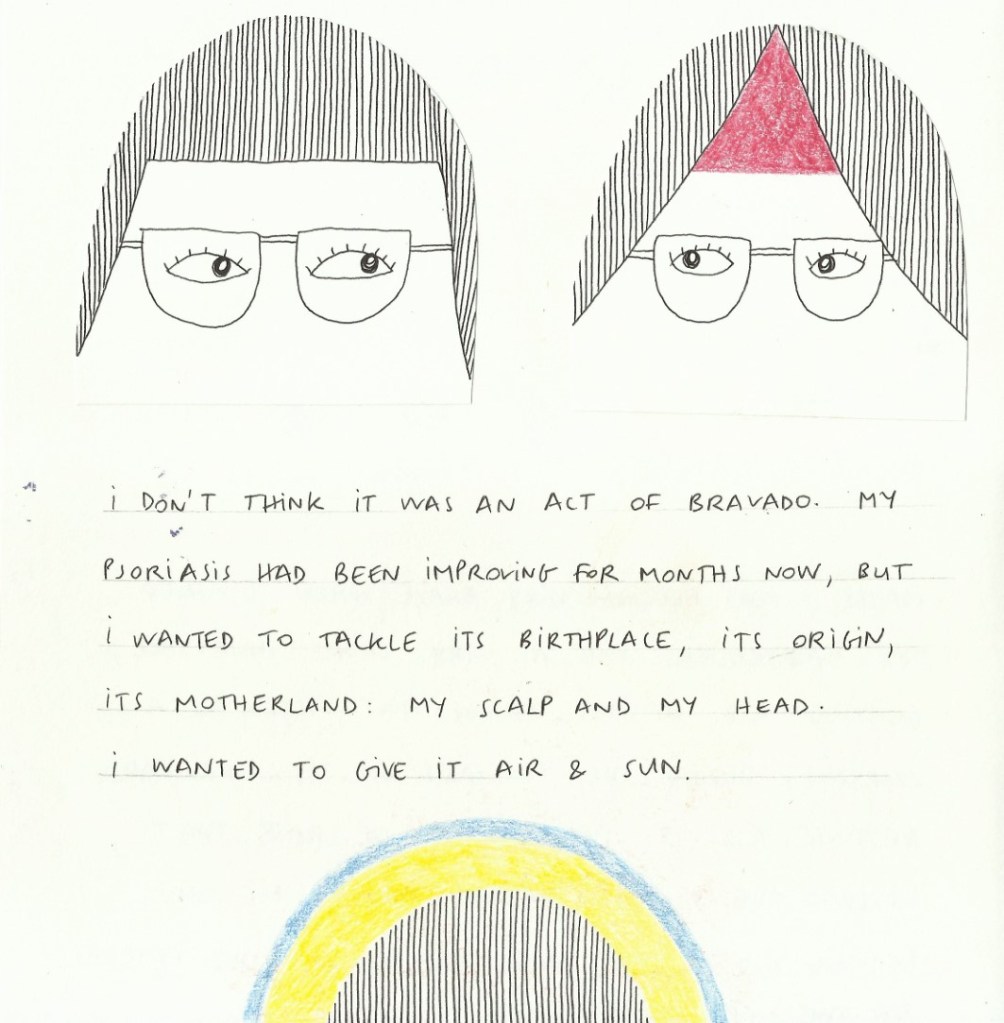 i DON'T THINK iT WAS AN ACT OF BRAVADO. MY
PSORiASiS HAD BEEN iMPROViNG FOR MONTHS NOW, BUT
i WANTED TO TACKLE iTS BiRTHPLACE, iTS ORiGiN,
iTS MOTHERLAND: MY SCALP AND MY HEAD.
i WANTED TO GiVE iT AiR & SUN.